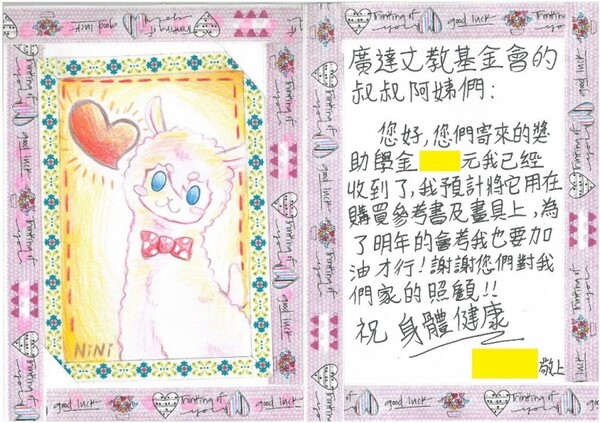 Thinking of you
good luck
Thinking of you
good luck
NiNi
good luck
Thinking of you
good luck
Thinking of you
廣達文教基金會的
叔叔阿姨們:
您好,您們寄來的獎
助學金 元我已經
收到了,我預計將它用在
購買參考書及畫具上,為
了明年的會考我也要加
油才行!謝謝您們對我
們家的照顧!!
祝 身體健康
敬上
good luck
Thinking of you
good luck